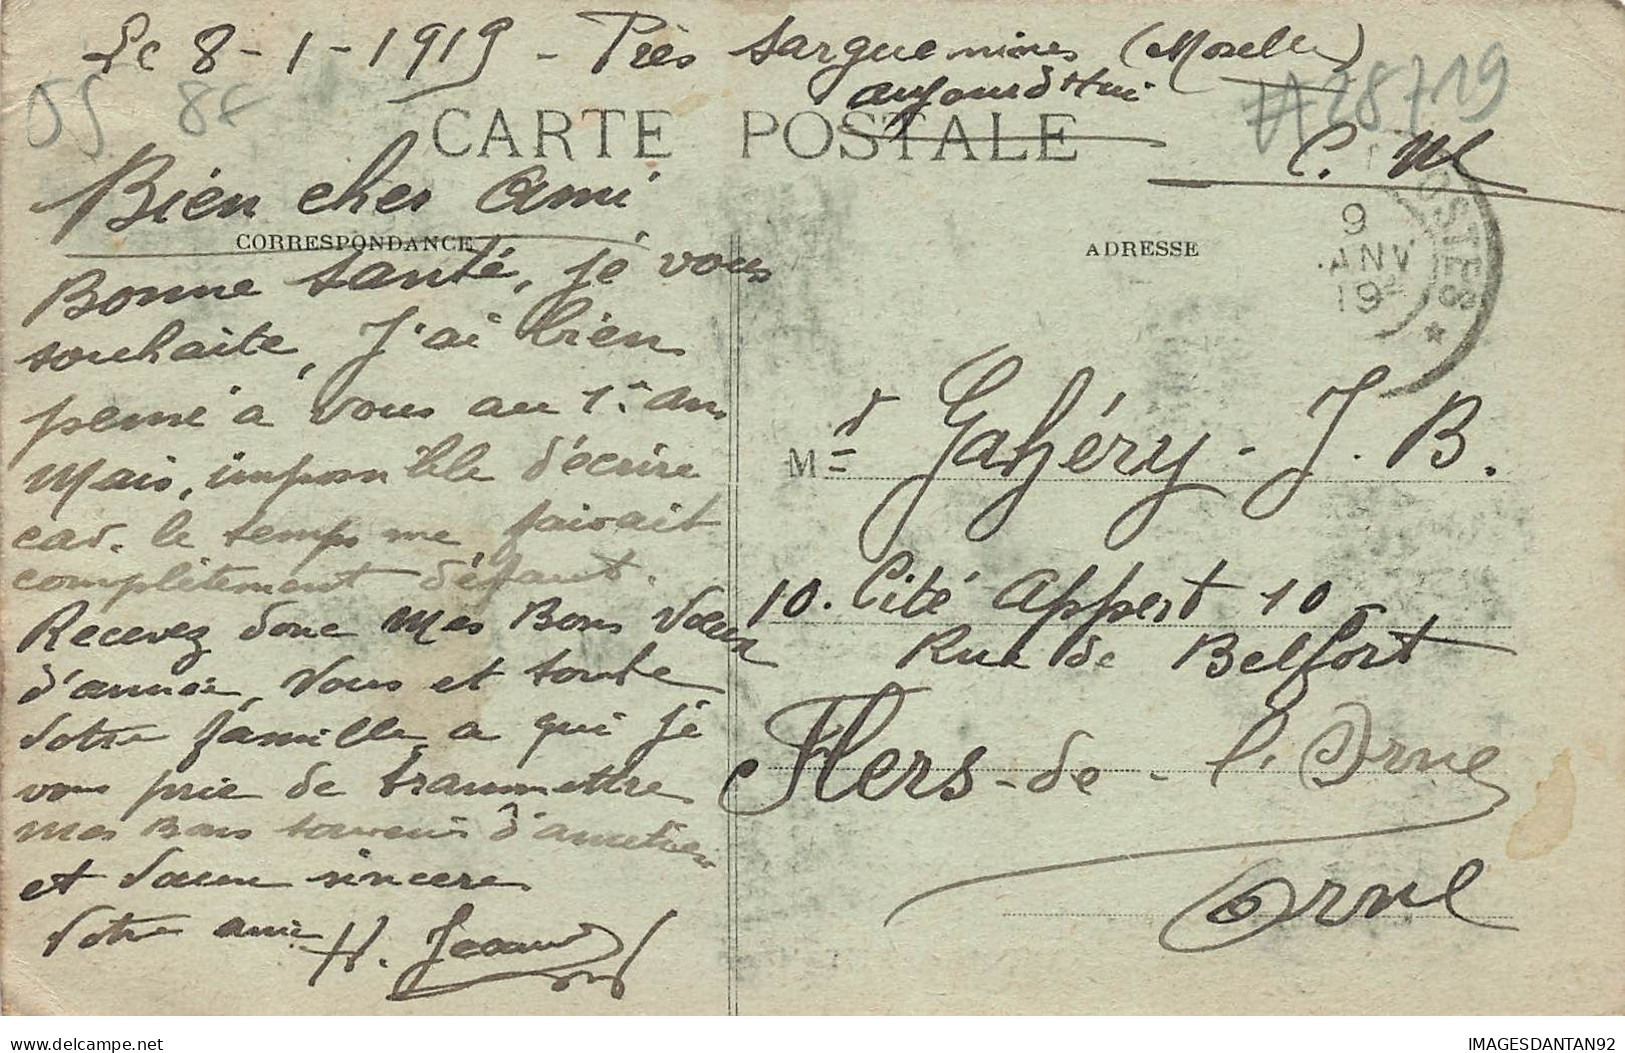 Le 8-1-1919 - Près Sarguemines (Moselle)
aujourd'Hui
#28719
CARTE POSTALE
C. M
Bien cher Ami
CORRESPONDANCE
Bonne Santé, je vous
souhaite, J'ai bien
pensé à vous au 1er an
Mais, impossible d'écrire
car. le temps me faisait
complètement défaut.
Recevez donc mes Bons Vœux
d'année, Vous et toute
Votre famille, a qui je
vous prie de transmettre
mes Bons souvenirs d'amitiés
et d'aune sincere
Votre ami H.
ADRESSE
POSTES
9
JANV
19
Mr Gahéry - J. B.
10. Cité Appert 10
Rue de Belfort
Flers-de-l'Orne
Orne
delcampe.net
IMAGESDANTAN92